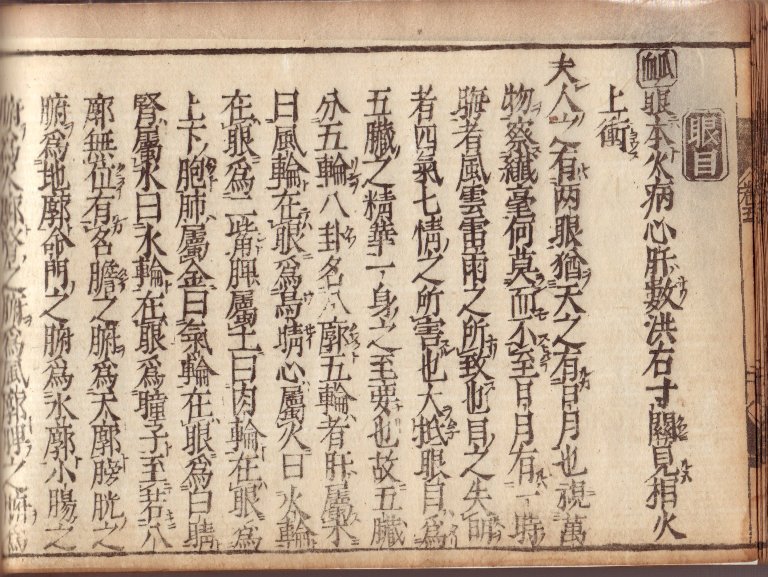 眼目
䘑眼本火病心肝數洪右寸關見相火
上衝
夫人之有两眼猶天之有日月也視萬
物察纖毫何莫而不至日月有一時
晦者風雲雷雨之所致也目之失明
者四氣七情之所害也大抵眼目爲
五臟之精華一身之至要也故五臟
分五輪八卦名八廓五輪者肝屬木
曰風輪在眼爲烏睛心屬火曰火輪
在眼爲二眥脾屬土曰肉輪在眼爲
上下胞肺屬金曰氣輪在眼爲白睛
腎屬水曰水輪在眼爲瞳子至若八
廓無位有名膽之腑爲天廓膀胱之
腑爲地廓命門之腑爲水廓小腸之
腑爲火廓腎之腑爲風廓脾之腑爲